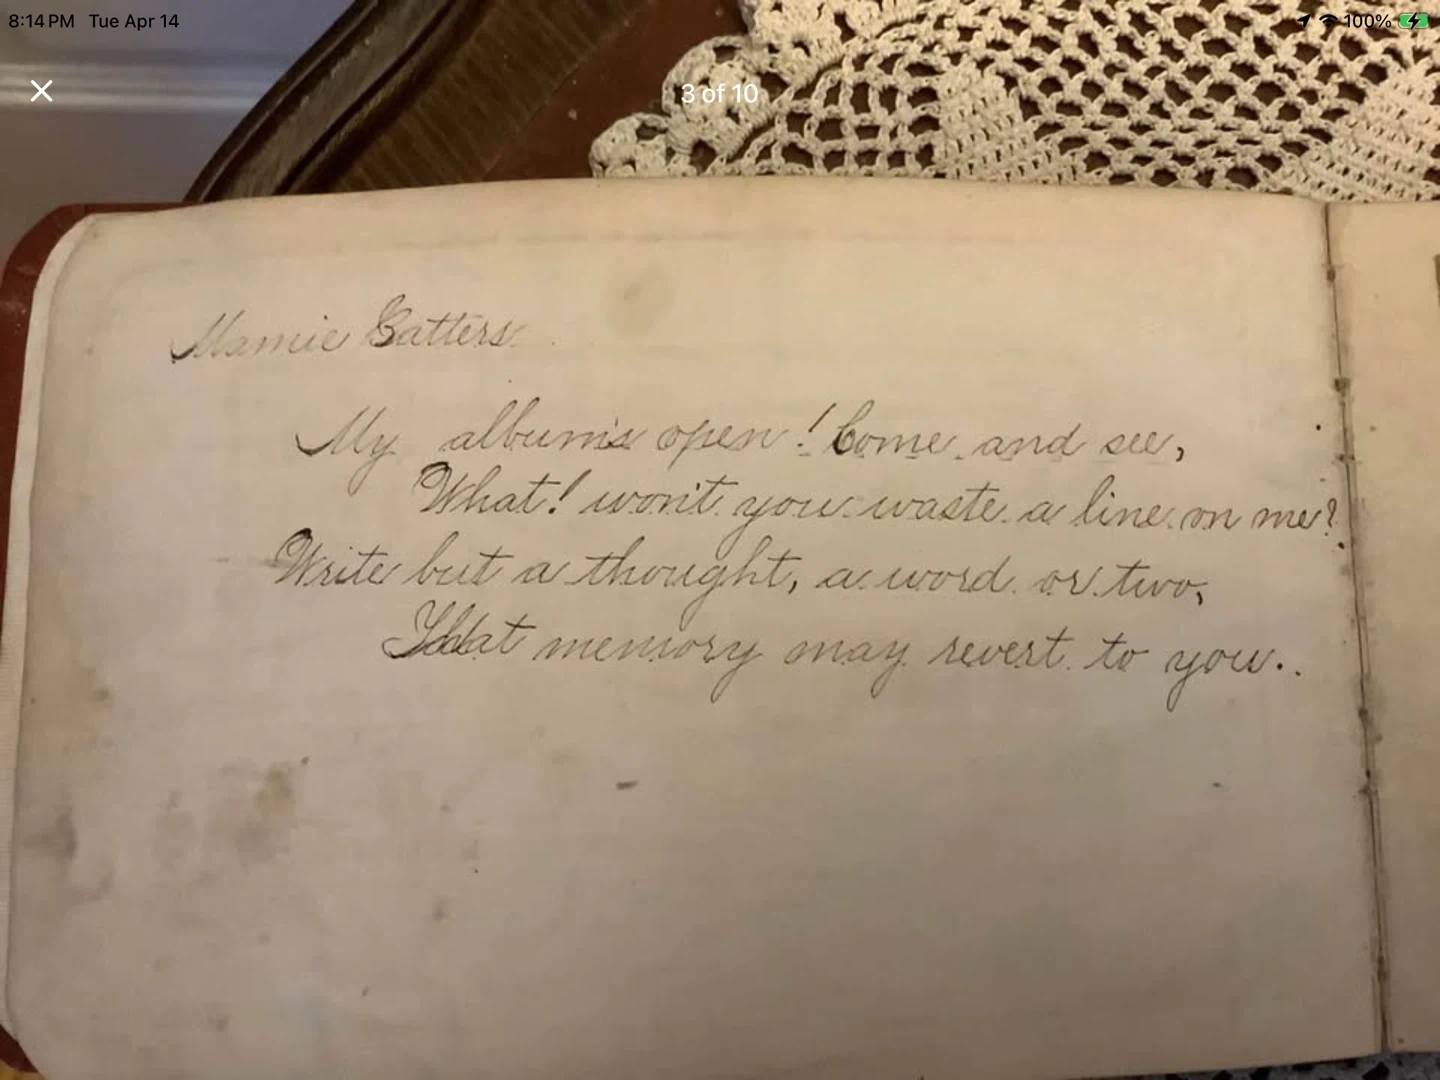 8:14 PM Tue Apr 14
100%
3 of 10
Mamie
My album's open! Come and see,
What! won't you waste a line on me?
Write but a thought, a word or two,
That memory may revert to you.